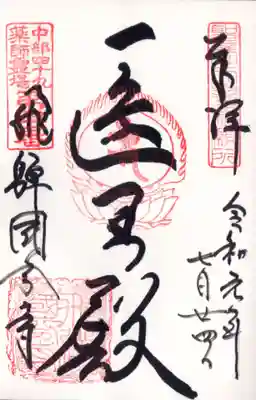 奉拝
令和元年
七月廿四日
医王殿
飛騨國分寺
中部四十九
薬師霊場